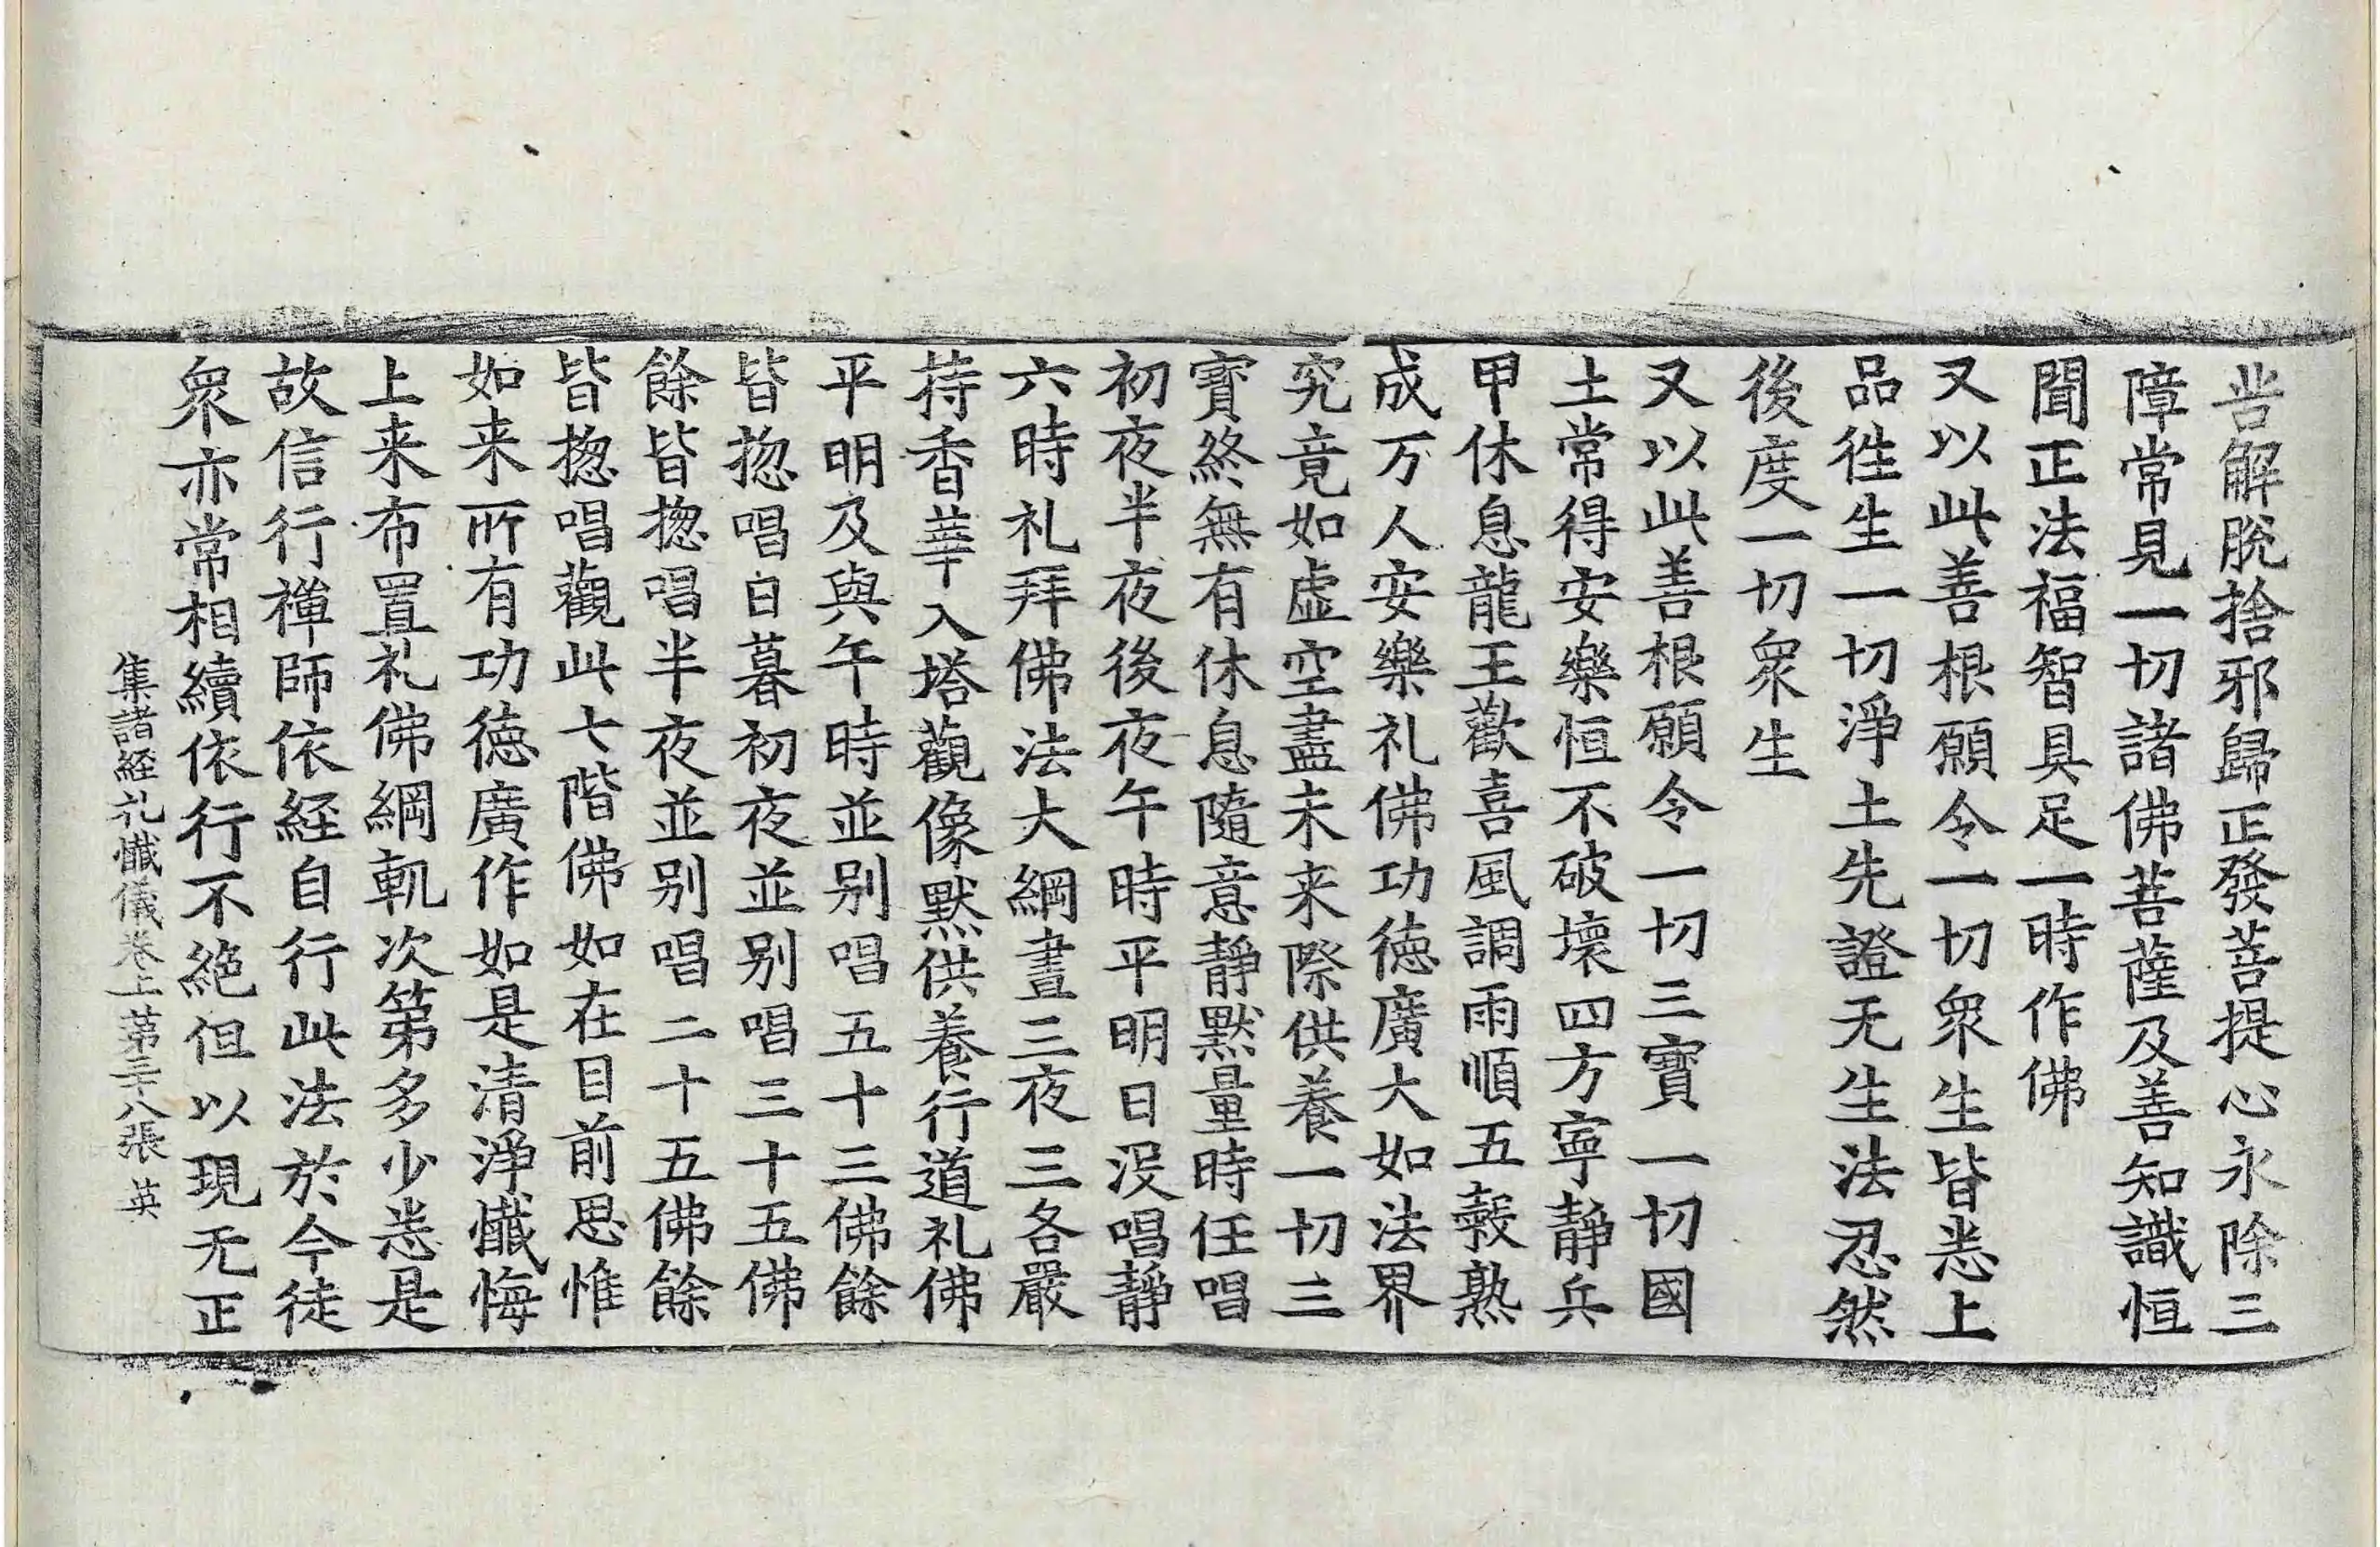 皆解脫捨邪歸正發菩提心永除三
障常見一切諸佛菩薩及善知識恒
聞正法福智具足一時作佛
又以此善根願令一切衆生皆悉上
品徃生一切淨土先證无生法忍然
後度一切衆生
又以此善根願令一切三寶一切國
土常得安樂恒不破壞四方寧靜兵
甲休息龍王歡喜風調雨順五穀熟
成万人安樂礼佛功德廣大如法界
究竟如虛空盡未来際供養一切三
寶終無有休息隨意靜默量時任唱
初夜半夜後夜午時平明日没唱靜
六時礼拜佛法大綱晝三夜三各嚴
持香華入塔觀像默供養行道礼佛
平明及與午時並别唱五十三佛餘
皆揔唱日暮初夜並别唱三十五佛
餘皆揔唱半夜並别唱二十五佛餘
皆揔唱觀此七階佛如在目前思惟
如来所有功德廣作如是清淨懺悔
上来布置礼佛綱軌次第多少悉是
故信行禪師依経自行此法於今徒
衆亦常相續依行不絶但以現无正
集諸経礼懺儀卷上第二十八張 英